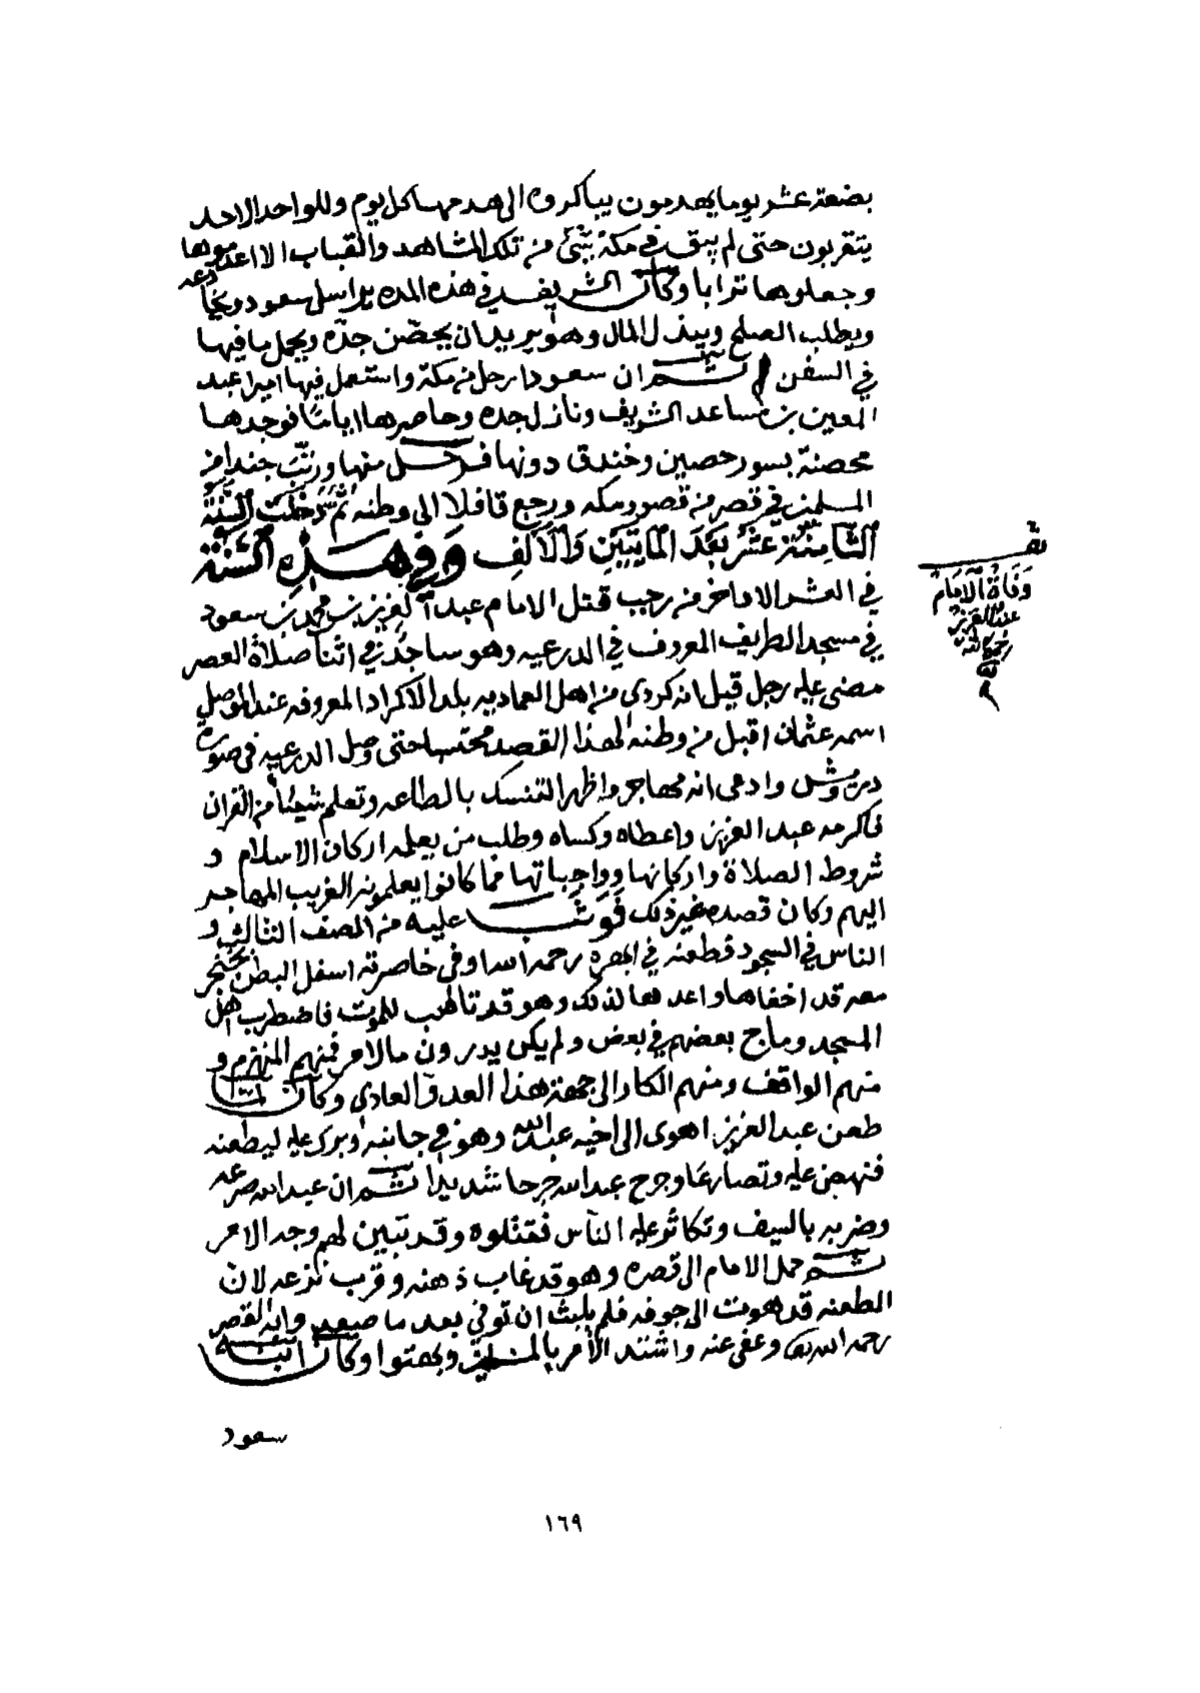 بضعة عشر يوما يهدمون يباكرون الى هدمها كل يوم وللواحد الاحد
يتقربون حتى لم يبق في مكة شيئ من تلك المشاهد والقباب الا اعدموها
وجعلوها ترابا وكان الشريف في هذه المده يراسل سعود ويخادعه
ويطلب الصلح ويبذل المال وهو يريد ان يحصّن جدّه ويحمل ما فيها
في السفن ثم ان سعودا رحل من مكة واستعمل فيها اميرا عبد
المعين بن مساعد الشريف ونازل جده وحاصرها اياما فوجدها
محصنة بسور حصين وخندق دونها فرحل منها ورتّب جندا من
المسلمين في قصر من قصور مكه ورجع قافلا الى وطنه ثُمَّ دَخَلَتْ السَّنَةُ
الثَّامِنَة عَشَر بَعْدَ المَايَتَيْنِ وَالأَلْفِ وَفِي هَذِهِ السَّنَة
في العشر الاواخر من رجب قتل الامام عبد العزيز بن محمد بن سعود
في مسجد الطريف المعروف في الدرعيه وهو ساجدٌ في اثنا صلاة العصر
مضى عليه رجل قيل انه كردي من اهل العماديه بلد الاكراد المعروفه عند الموصل
اسمه عثمان اقبل من وطنه لهذا القصد محتسبا حتى وصل الدرعيه في صورة
درويش وادعى انه مهاجر واظهر التنسك بالطاعه وتعلم شيئا من القران
فاكرمه عبد العزيز واعطاه وكساه وطلب من يعلمه اركان الاسلام و
شروط الصلاة واركانها وواجباتها مما كانوا يعلمونه الغريب المهاجر
اليهم وكان قصده غير ذلك فَوَثَب عليه من الصف الثالث و
الناس في السجود فطعنه في ابهره رحمه الله او في خاصرته اسفل البطن بخنجر
معه قد اخفاها واعدها لذلك وهو قد تاهب للموت فاضطرب اهل
المسجد وماج بعضهم في بعض ولم يكن يدرون مالامر فمنهم المنهزم و
منهم الواقف ومنهم الكار الى جهة هذا العدو العادي وكان لما
طعن عبد العزيز اهوى الى اخيه عبد الله وهو في جانبه وبرك عليه ليطعنه
فنهض عليه وتصارعا وجرح عبد الله جرحا شديدا ثم ان عبد الله صرعه
وضربه بالسيف وتكاثر عليه الناس فقتلوه وقد تبين لهم وجه الامر
ثم حمل الامام الى قصره وهو قد غاب ذهنه وقرب نزعه لان
الطعنه قد هوت الى جوفه فلم يلبث ان توفي بعد ما صعدوا به القصر
رحمه الله تعالى وعفى عنه واشتد الأمر بالمسلمين وبهتوا وكان ابنه
سعود
قف
وَفَاة الإمَام
عبد العزيز
رحمه الله
١٦٩